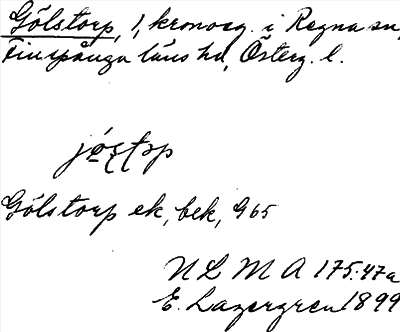 Gölstorp, 1, kronoeg. i Regna sn,
Finspånga läns hd, Österg. l.
Gölstorp ek, bek, G 65
N L M A 175:47a
E. Lagergren 1899